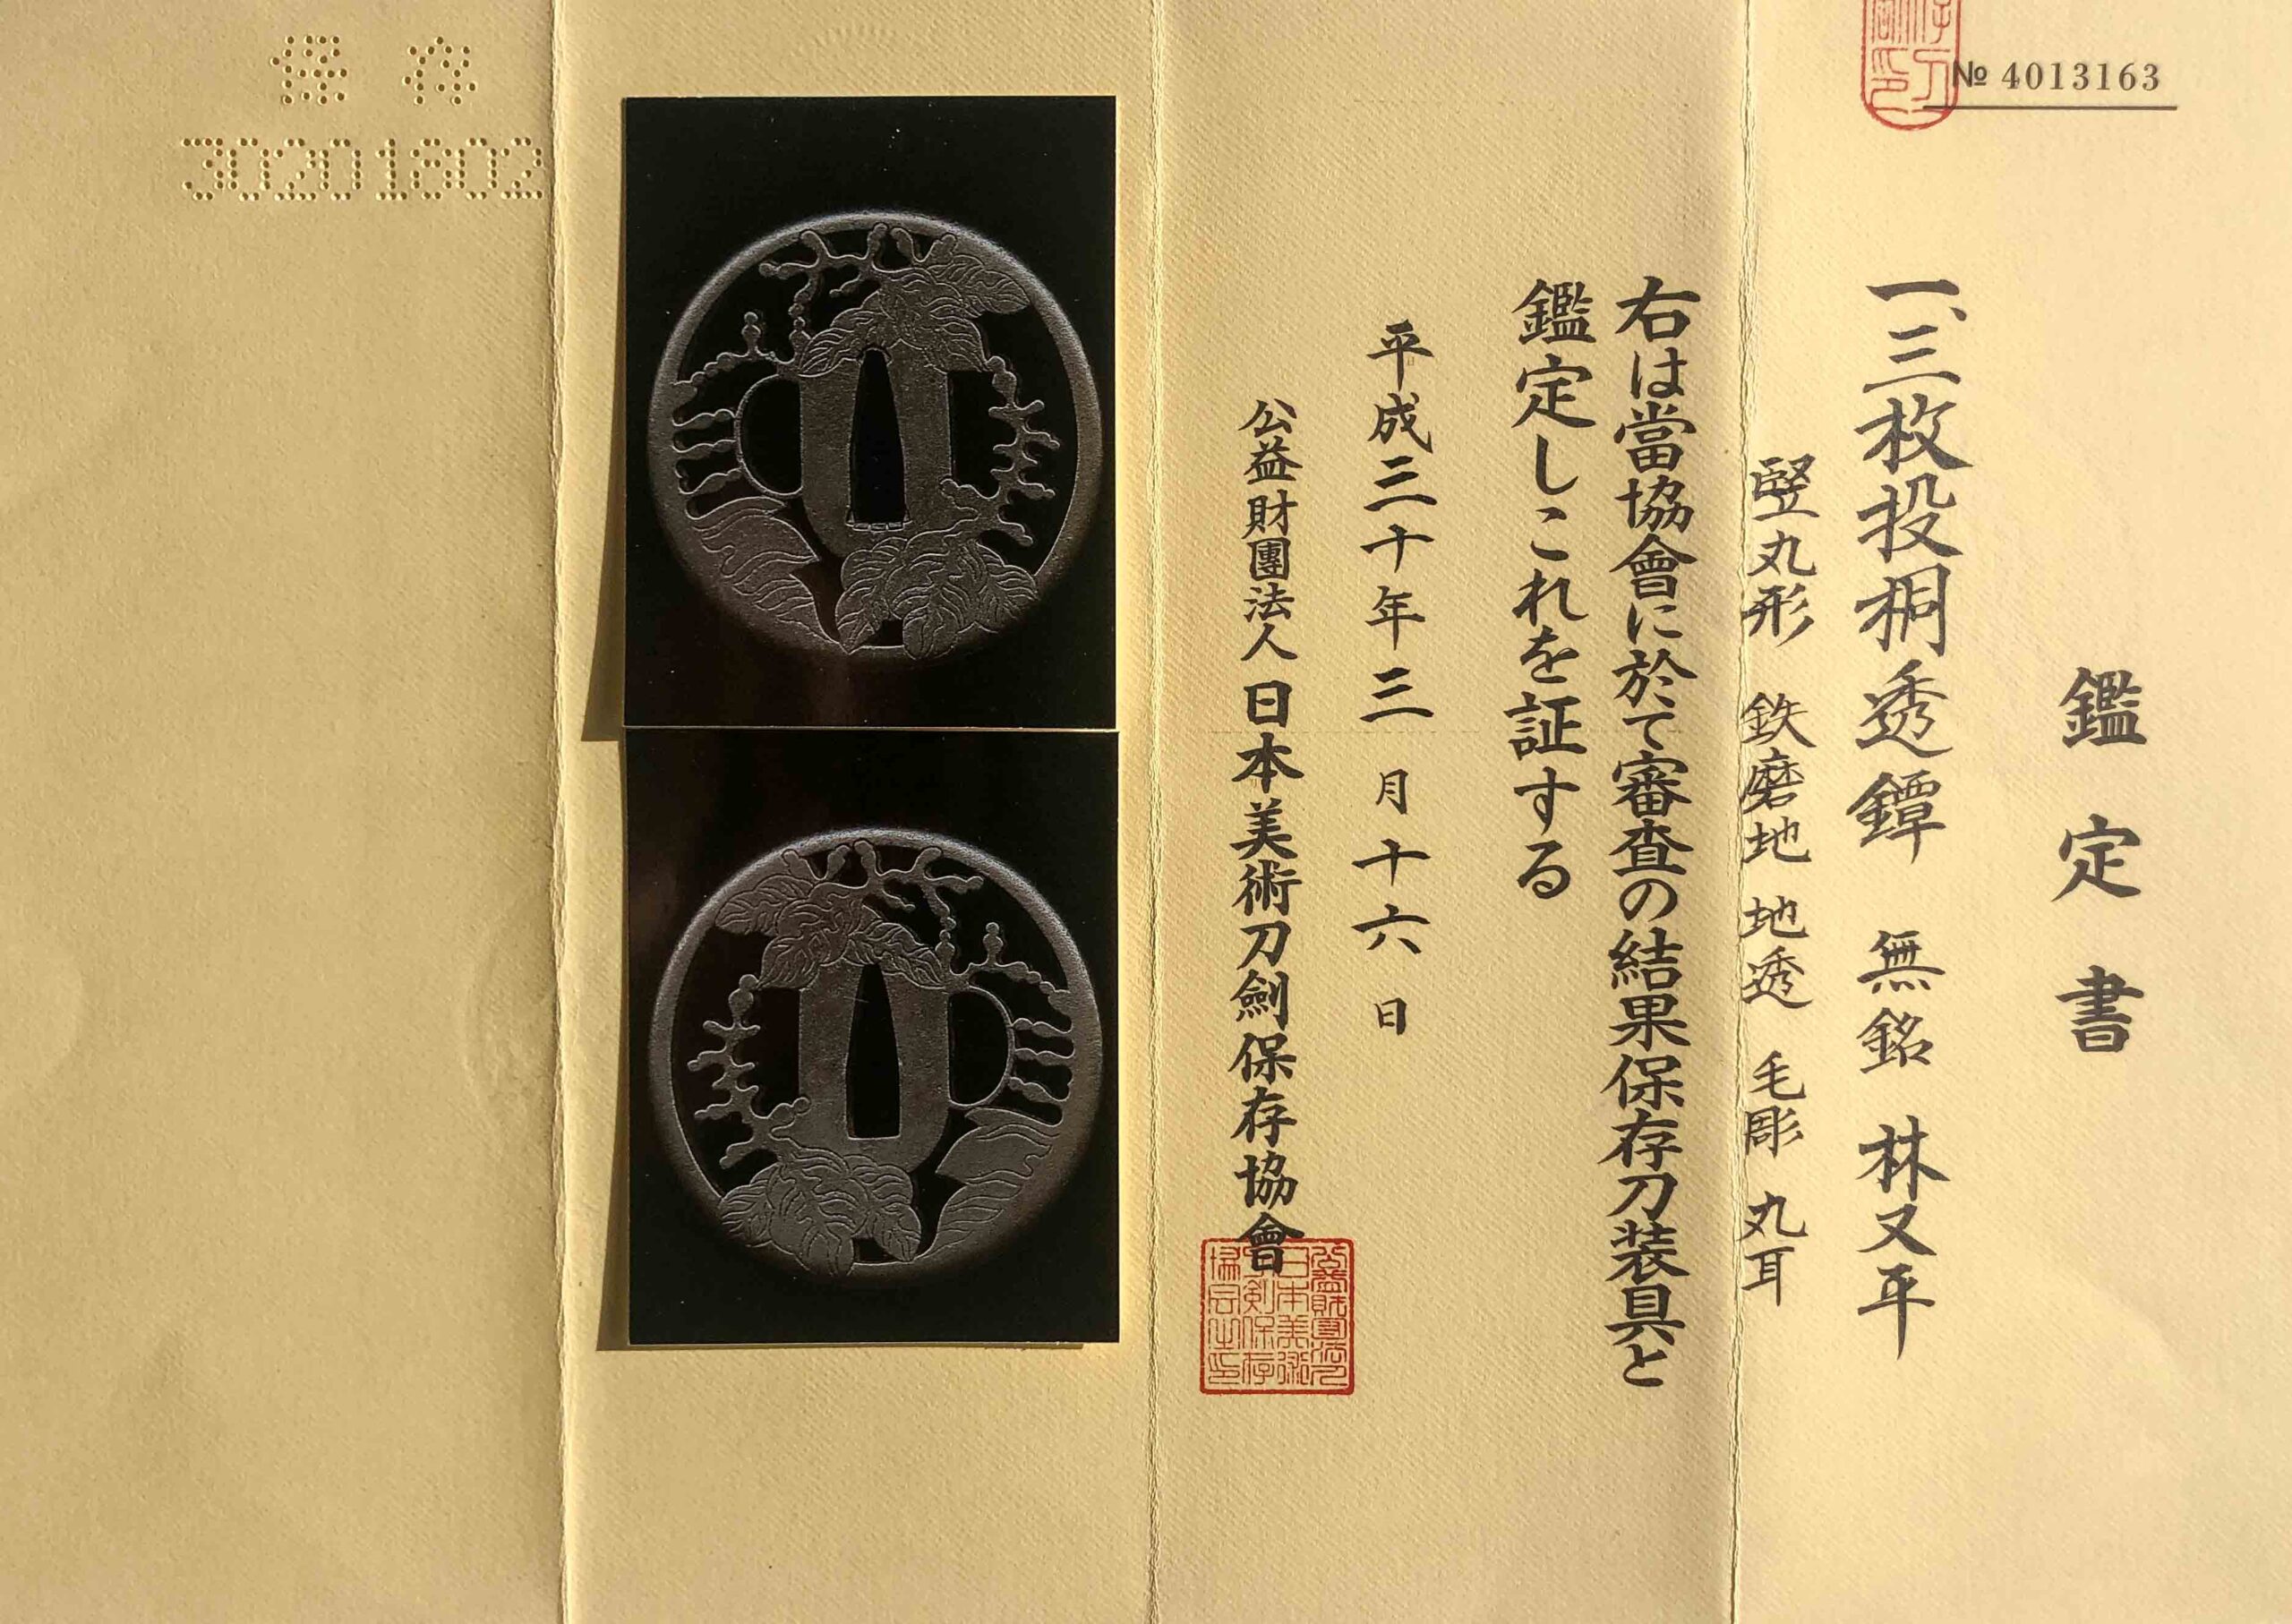 № 4013163
鑑定書
一、三枚投桐透鐔 無銘 林又平
竪丸形 鉄磨地 地透 毛彫 丸耳
右は當協會に於て審査の結果保存刀装具と
鑑定しこれを証する
平成三十年三月十六日
公益財團法人日本美術刀劍保存協會
保存
30201802